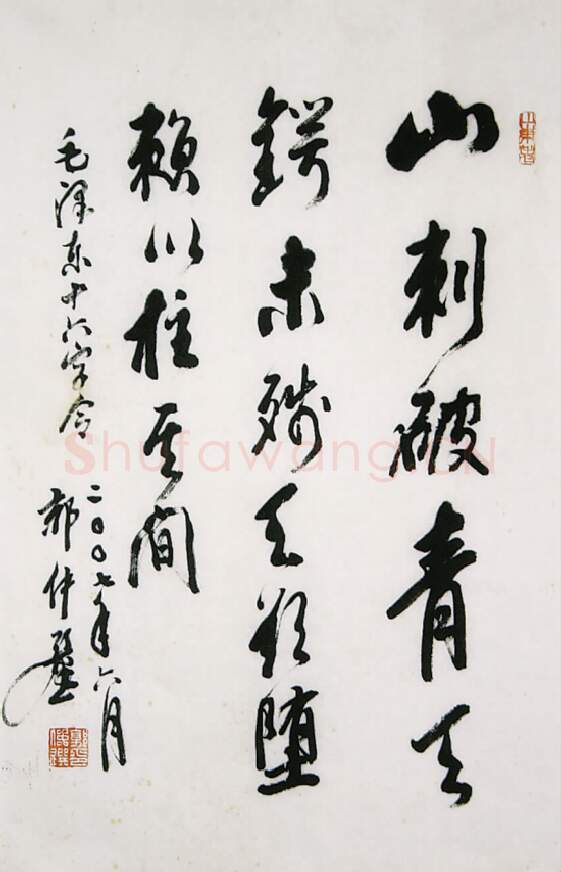 山刺破青天
鍔未残天欲堕
賴以柱其间
毛泽东十六字令
二〇〇七年六月
郭仲選
Shufawang.CN